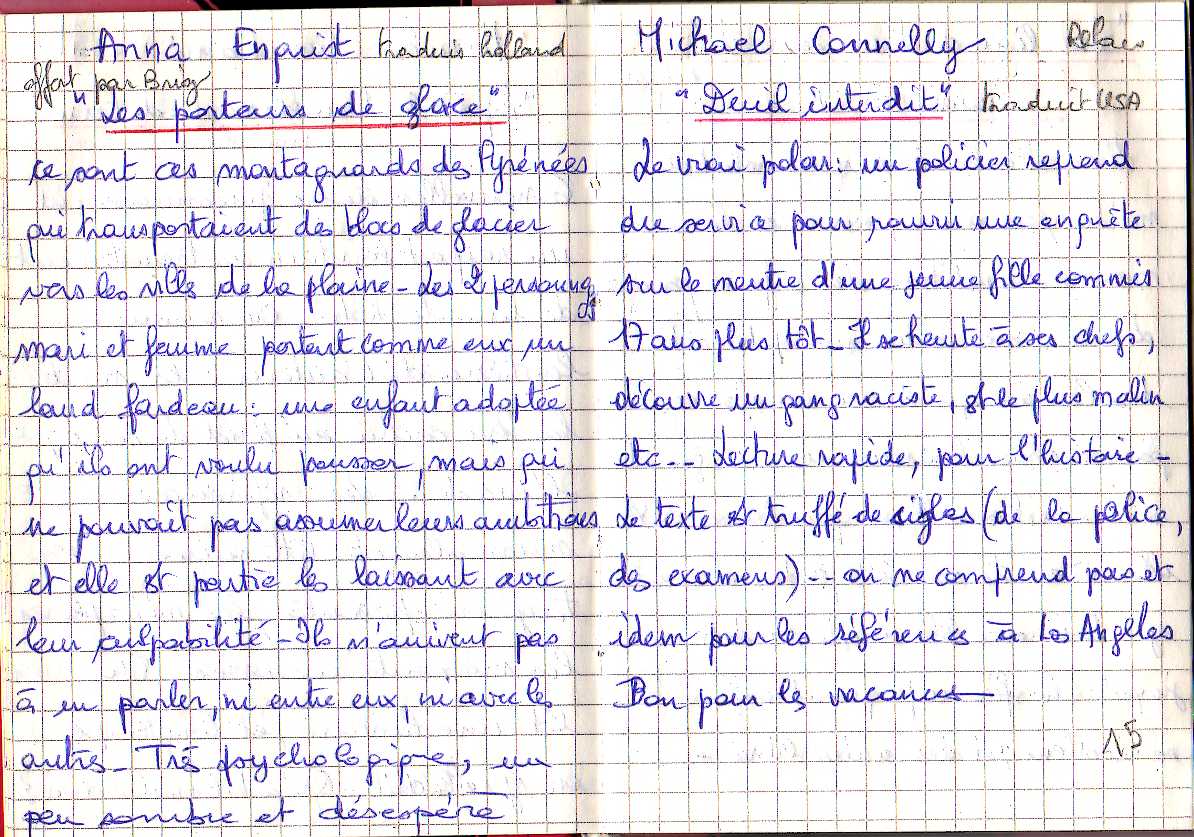 Anna Enquist traduis holland
offert par Brig
"Les porteurs de glace"
ce sont ces montagnards des Pyrénées
qui transportaient des blocs de glacier
vers les villes de la plaine - Les 2 personnages
mari et femme portent comme eux un
lourd fardeau : une enfant adoptée
qu'ils ont voulu pousser, mais qui
ne pouvait pas assumer leurs ambitions
et elle est partie les laissant avec
leur culpabilité - Ils n'arrivent pas
à en parler, ni entre eux, ni avec les
autres - Très psychologique, un
peu sombre et désespéré
Michael Connelly Relais
"Deuil interdit" traduit USA
Le vrai polar : un policier reprend
du service pour rouvrir une enquête
sur le meurtre d'une jeune fille commis
17 ans plus tôt - Il se heurte à ses chefs,
découvre un gang raciste, est le plus malin
etc -- Lecture rapide, pour l'histoire -
Le texte est truffé de sigles (de la police,
des examens) -- on ne comprend pas et
idem pour les références à Los Angeles
Bon pour les vacances
15